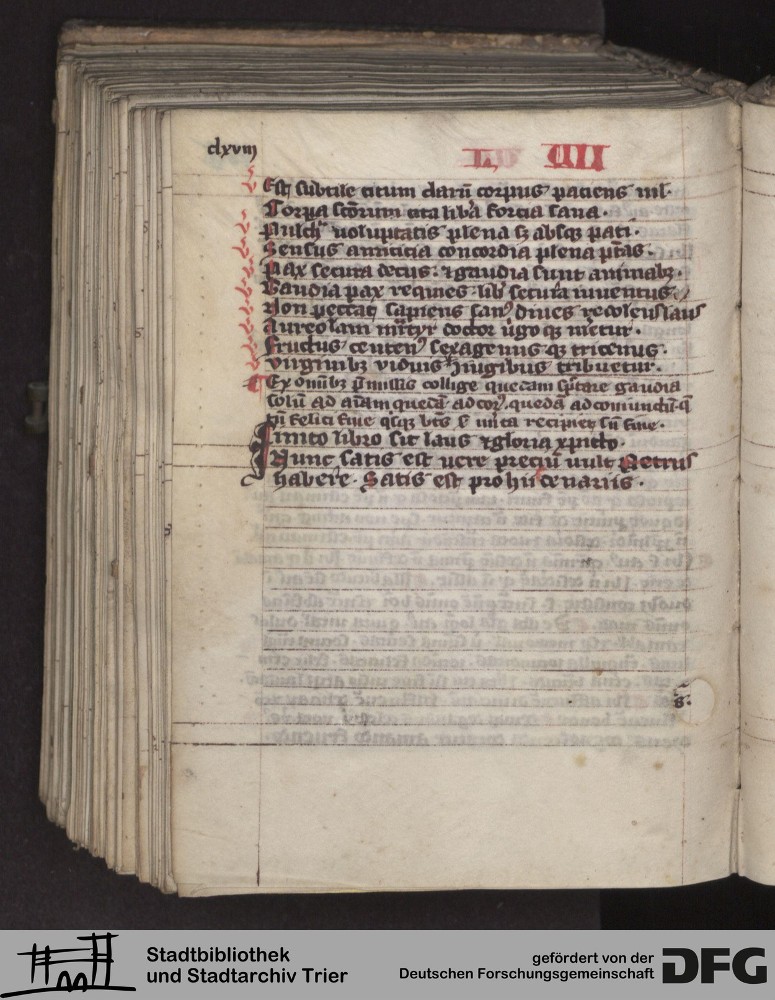 clxviij
L VIII
Est subtile citum clarū corpus patiens nil.
Corpa scōrum cita libā forcia sana.
Pulchͬ uoluptatis plena sꝫ absqꝫ pati.
Sensus amicicia concordia plena ptās.
Pax secura decus. ⁊ gaudia sunt animabꝫ.
Gaudia pax requies. lib secura iuuentus.
Non peccās sapiens sanꝰ diues recolens laus
Aureolam mr̄tyr doctor ūgo qꝫ meretur.
Fructus centenꝰ sexagenus qꝫ tricenus.
virginibꝫ viduis ꝯiugibus tribuetur.
Ex om̄ibꝫ p̄missis collige quedam spectare gaudia
solū ad aīam quedā ad corꝰ. quedā ad coniunctū. q̄
sū felici fine
Finito libro sit laus ⁊ gloria xpisto.
Nunc satis est uere preciū uult Petrus
habere. Satis est pro hiis denariis.
8.
Stadtbibliothek
und Stadtarchiv Trier
gefördert von der
Deutschen Forschungsgemeinschaft
DFG